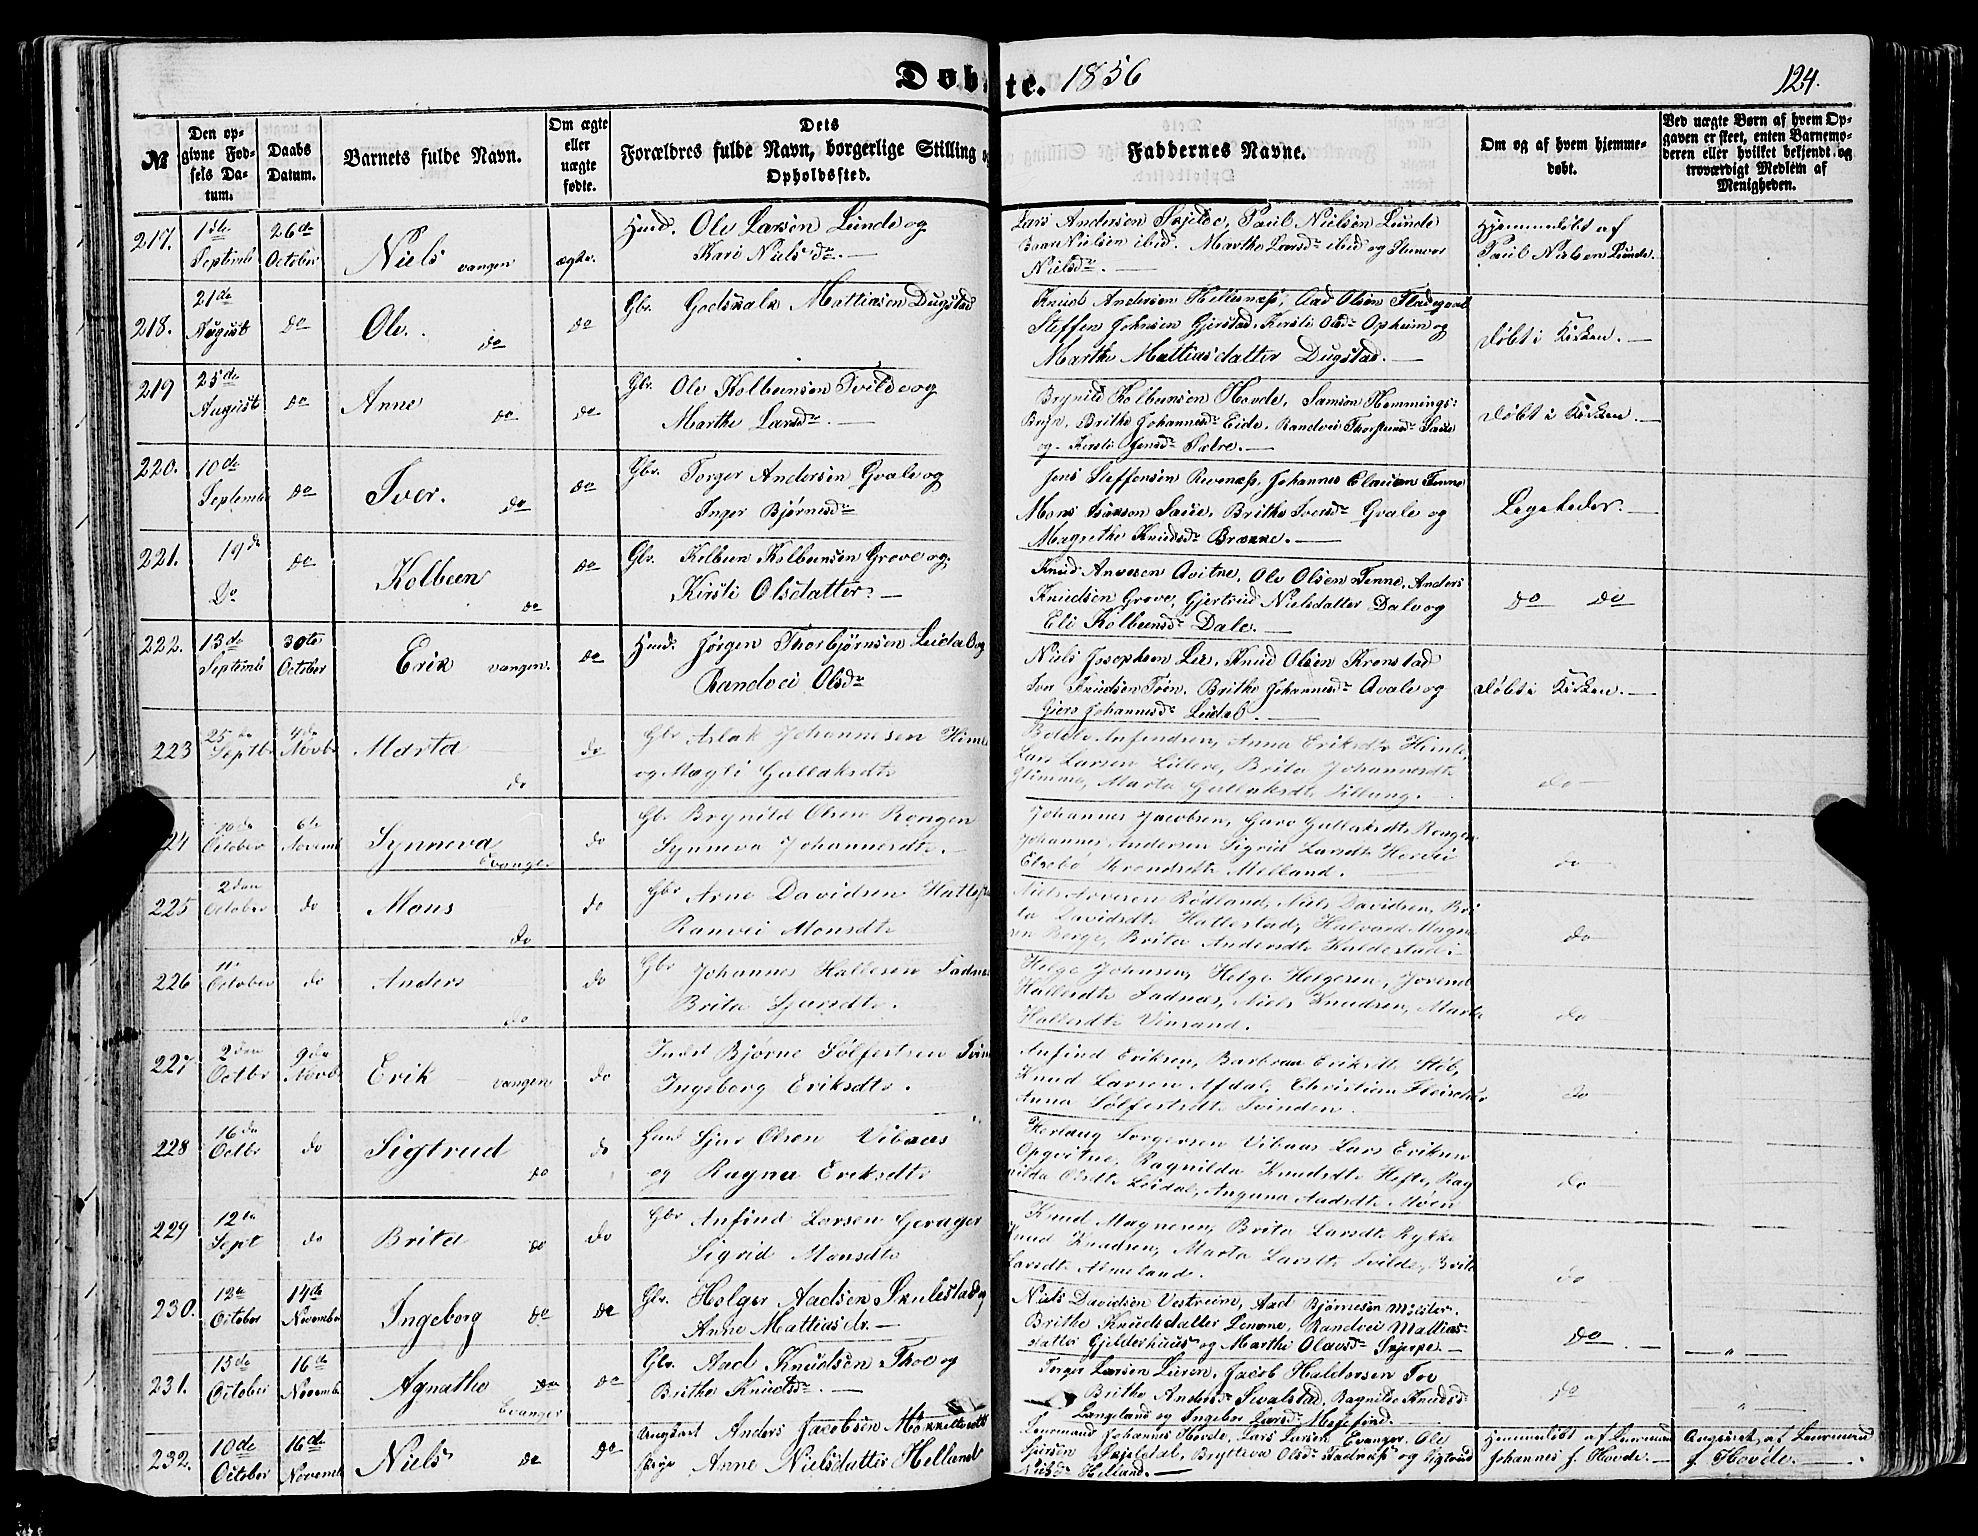 Døbte. 1856
124.
№
Den opgivne Fødsels Datum.
Daabs Datum.
Barnets fulde Navn.
Om ægte eller uægte fødte.
Dets Forældres fulde Navn, borgerlige Stilling og Opholdssted.
Faddernes Navne.
Om og af hvem hjemmedøbt.
Ved uægte Børn af hvem Opgaven er skeet, enten Barnemoderen eller hvilket bekjendt og troværdigt Medlem af Menigheden.
217. 1ste Septemb 26de October Niels vangen ægte. Huusd. Ole Larsen Lunde og
Kari Nielsdr. —
Lars Andersen Skjelde, Paul Nielsen Lunde
Nielsen ibid. Marthe Larsdr ibid og
Nielsdr. —
Hjemmedøbt af
Paul Nielsen Lunde.
218. 21de August do Ole. do do Gbr. Godskalk Mattiasen Dugstad
Knud Andersen Hellernæss, Aad Olsen
Steffen Johnsen Gjerstad, Kirsti Olsdr Opheim og
Marthe Mattiasdatter Dugstad. —
døbt i Kirken. —
219 25de August do Anne do do Gbr. Ole Kolbeinsen Tvilde og
Marthe Larsdr. —
Brynild Kolbeinsen Hovde, Samson Hemmings:
Brithe Johannesdr Eide, Randvei
og Kirsti Jensdr Sætre. —
døbt i Kirken. —
220. 10de Septemb do Iver. do do Gbr. Torger Andersen Qvale og
Inger Bjørnsdr
Jens Steffensen Revenæss, Johannes Clausen Finne
Mons Isakson Saue, Brithe Iversdr Qvale og
Magrethe Knudsdr Brække. —
Ligeledes. —
221. 19de Do do Kolbeen do do Gbr. Kolbeen Kolbeensen Grove og
Kirsti Olsdatter. —
Knud Qvitne, Ole Olsen Finne, Anders
Knudsen Grove, Gjertrud Nielsdatter Dale og
Eli Kolbeensdr Dale. —
do do
222. 13de Septemb 30te October Erik vangen. do Huusd. Jørgen Thorbjørnsen Leidal og
Randvei Olsdr
Niels Josephsen Lie, Knud Olsen Kronstad
Iver Knudsen Tøn, Brithe Johannesdr Qvale og
Johannesdr Leidal. —
døbt i Kirken. —
223 25de Septbr 4de Novbr Marta do do Gbr Aslak Johannesen Himle
og Magli Gullaksdtr
Anfindsen, Anna Eriksdtr Himle,
Lars Larsen Lidere, Brita Johannesdtr
Glimme, Marta Gullaksdtr Lillung.
do
October 6te Novemb Synneva Evanger do Gbr Brynild Olsen Rongen
Synneva Johannesdtr.
Johannes Jacobsen, Guro Gullaksdtr Rongen
Johannes Andersen Sigrid Larsdtr Horvei
Melland.
do
225 2den October do Mons do do Gbr Arne Davidsen
Ranvei Monsdtr
Rødland, Niels Davidsen, Bri
ta Davidsdtr Hallestad, Halvard Magne
sen Berge, Brita Andersdtr Kaldestad.
do
226 11te October do Anders do do Gbr Johannes Hallesen Fadnes
Brita Sjursdtr.
Helge Johnsen, Helge Helgesen,
Hallesdtr Fadnæs, Niels Knudsen, Marta
Hallesdtr Vinsand.
do
227 2den Octbr 9de Novbr Erik vangen do Bjørne Sølfestsen
Ingeborg Eriksdtr.
Anfind Eriksen, Barbraa Eriksdtr
Knud Larsen Afdal, Christian Fleischer
Anna Sølfestsdtr Tvinden.
do
228 16de Octbr do Sigtrud do do Huusd Sjur Olsen Vibaas
og Ragna Eriksdtr
Herlaug Torgersen Vibaas Lars Eriksen
Opqvitne, Ragnilda Knudsdtr Hefte, Rag
nilda Olsdtr Leidal, Anguna Aadsdtr Møen
do
229 12te Sept do Brita do do Gbr Anfind Larsen Gjerager
Sigrid Monsdtr
Knud Magnesen, Brita Larsdtr Rykke
Knud Knudsen, Marta Larsdtr Tvilde, Brita
Larsdtr Almeland.
do
230. 12te October 14de November Ingeborg do do Gbr. Holger Aadsen Skulestad og
Anne Mattiasdr. —
Niels Davidsen Vestreim, Aad Bjørnesen
Brithe Knudsdatter Lemme, Randvei Mattias-
datter Gjelderhuus og Marthe Olavsdr Skjerpe. —
do. —
231. 15de October 16de Novemb Agnethe do Evanger do Gbr. Aad Knudsen Thoe og
Brithe Knudsdr. —
Torger Larsen Liren, Jacob Haldorsen Toe
Brithe Andersdr Sivalstad, Ragnilde Knudsd:
Langeland og Ingebor Larsdr
do
232. 10de October 16de Novemb Niels do do Anders Jacobsen
Pige Anne Nielsdatter Helland
Lensmand Johannes Hovde, Lars Larsen Evanger, Ole
Sjursen Skjeldal, Olsdr Fadnæss og Sigtrud
Nielsdr Helland. —
Hjemmedøbt af Lensmand
Johannes J. Hovde. —
Angivet af Lensmand
J. Hovde. —